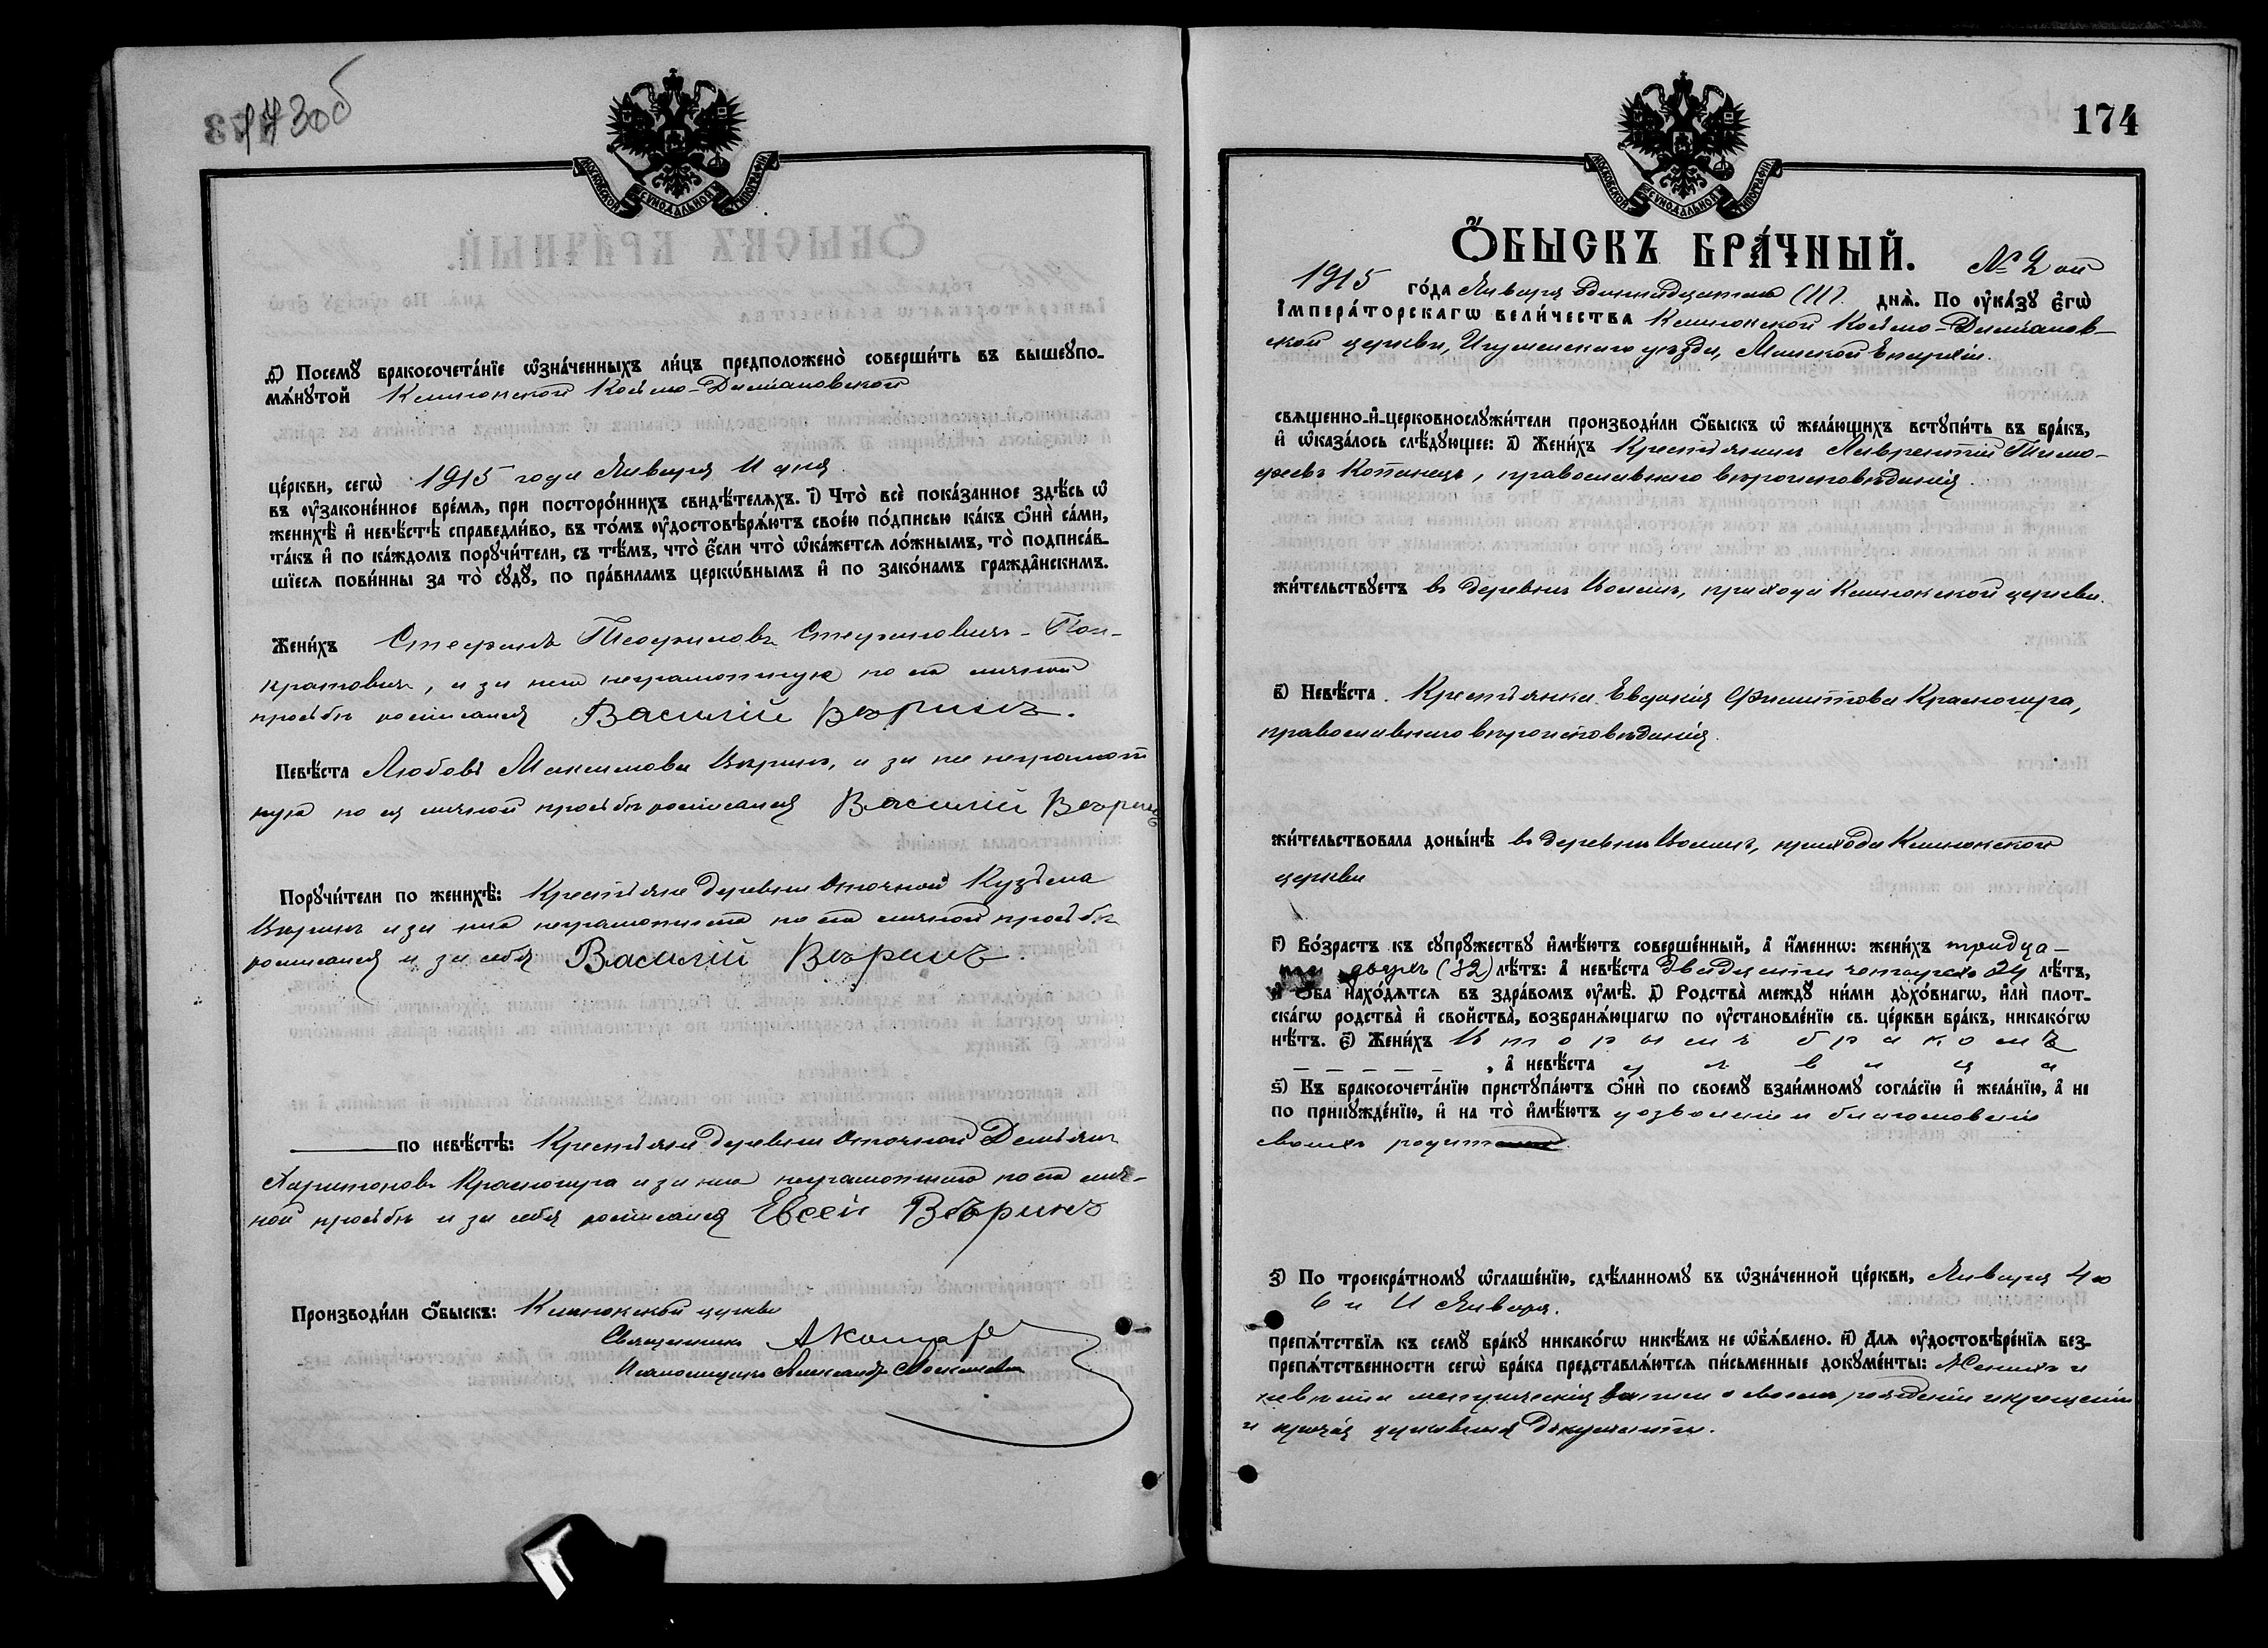 173об
МОСКОВСКОЙ СѴНОДАЛЬНОЙ ТИПОГРАФІИ
д҃) Посемꙋ бракосочета́нїе ѡ҆зна́ченныхъ ли́цъ предположено̀ соверши́ть въ вышеꙋпо-
мѧ́нꙋтой Клинокской Косьмо-Даміановской
це́ркви, сегѡ̀ 1915 года Января 11 дня.
въ ᲂу҆зако́ненное вре́мѧ, при посторо́ннихъ свидѣ́телѧхъ. і҃) Что̀ всѐ пока́занное здѣ́сь ѡ҆
женихѣ̀ и҆ невѣ́стѣ справедли́во, въ то́мъ ᲂу҆достовѣрѧ́ютъ свое́ю по́дписью ка́къ ѻ҆нѝ са́ми,
та́къ и҆ по ка́ждомъ порꙋчи́тели, съ тѣ́мъ, что̀ є҆́сли что̀ ѡ҆ка́жетсѧ ло́жнымъ, то̀ подписа́в-
шїесѧ пови́нны за то̀ сꙋдꙋ̀, по пра́виламъ церкѡ́внымъ и҆ по зако́намъ гражда̑нскимъ.
Жени́хъ Стефанъ Теофиловъ Стефановичъ-Пон-
кратовичъ, и за него неграмотнаго по его личной
просьбѣ росписался Василій Вѣринъ.
Невѣ́ста Любовь Максимова Вѣринъ, и за нее неграмот
ную по ея личной просьбѣ росписался Василій Вѣринъ
Порꙋчи́тели по женихѣ̀: Крестьяне деревни Кузьма
Вѣринъ и за него неграмотнаго по его личной просьбѣ
росписался и за себя Василій Вѣринъ.
по невѣ́стѣ: Крестьяне деревни Демьянъ
Харитоновъ Красногира и за него неграмотнаго по его лич-
ной просьбѣ и за себя росписался Евсей Вѣринъ
Производи́ли ѻ҆́быскъ: Клинокской церкви
Священникъ
Псаломщикъ Александръ
174
МОСКОВСКОЙ СѴНОДАЛЬНОЙ ТИПОГРАФІИ
Ѻ҆́БЫСКЪ БРА́ЧНЫЙ. № 2 ой
1915 го́да Января одиннадцатаго (11) днѧ̀. По ᲂу҆ка́зꙋ є҆гѡ̀
І҆мпера́торскагѡ вели́чества Клинокской Косьмо-Даміанов-
ской церкви, Игуменскаго уѣзда, Минской Епархіи.
свѧще́нно-и҆-церковнослꙋжи́тели производи́ли ѻ҆́быскъ ѡ҆ жела́ющихъ встꙋпи́ть въ бра́къ,
и҆ ѡ҆каза́лось слѣ́дꙋющее: а҃) Жени́хъ Крестьянинъ Лаврентій Тимо-
феевъ Копанецъ, православнаго вѣроисповѣданія.
жи́тельствꙋетъ въ деревнѣ, прихода Клинокской церкви.
в҃) Невѣ́ста. Крестьянка Евдокія Филиппова Красногира,
православнаго вѣроисповѣданія.
жи́тельствовала доны́нѣ въ деревнѣ, прихода Клинокской
церкви
г҃) Во́зрастъ къ сꙋпрꙋ́жествꙋ и҆мѣ́ютъ соверше́нный, а҆ и҆́меннѡ: жени́хъ тридца-
ти двухъ (32) лѣ́тъ: а҆ невѣ́ста двадцати четырехъ 24 лѣ́тъ,
и҆ ѻ҆́ба нахо́дѧтсѧ въ здра́вомъ ᲂу҆мѣ̀. д҃) Родства̀ междꙋ̀ ни́ми дꙋхо́внагѡ, и҆лѝ плот-
ска́гѡ родства̀ и҆ сво́йства̀, возбранѧ́ющагѡ по ᲂу҆становле́нїю св. це́ркви бра́къ, никако́гѡ
нѣ́тъ. є҃) Жени́хъ Вторымъ бракомъ
, а҆ невѣ́ста дѣвица
ѕ҃) Къ бракосочета́нїю пристꙋпа́ютъ ѻ҆нѝ по своемꙋ̀ взаи́мномꙋ согла́сїю и҆ жела́нїю, а҆ не
по принꙋжде́нїю, и҆ на то̀ и҆мѣ́ютъ дозволеніе и благословеніе
своихъ родителей.
з҃) По троекра́тномꙋ ѡ҆глаше́нїю, сдѣ́ланномꙋ въ ѡ҆зна́ченной це́ркви, Января 4го
6 и 11 Января.
препѧ́тствїѧ къ семꙋ̀ бра́кꙋ никако́гѡ никѣ́мъ не ѡ҆б̾ѧ́влено. и҃) Длѧ ᲂу҆достовѣре́нїѧ без-
препѧ́тственности сегѡ̀ бра́ка представлѧ́ютсѧ пи́сьменные докꙋме́нты: Жениха и
невѣсты метрическія записи о своемъ рожденіи и крещеніи
и прочія церковныя документы.